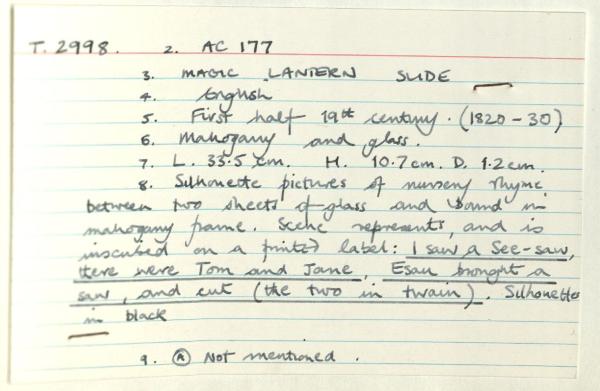 T. 2998. 2. AC 177
3. MAGIC LANTERN SLIDE
4. English
5. First half 19th century. (1820-30)
6. Mahogany and glass.
7. L. 33.5 cm. H. 10.7cm. D. 1.2cm.
8. Silhouette pictures of nursery rhyme
between two sheets of glass and bound in
mahogany frame. Scene represents, and is
inscribed on a printed label: I saw a See-saw,
there were Tom and Jane, Esau brought a
saw, and cut (the two in twain). Silhouettes
in black
9. Ⓐ Not mentioned.